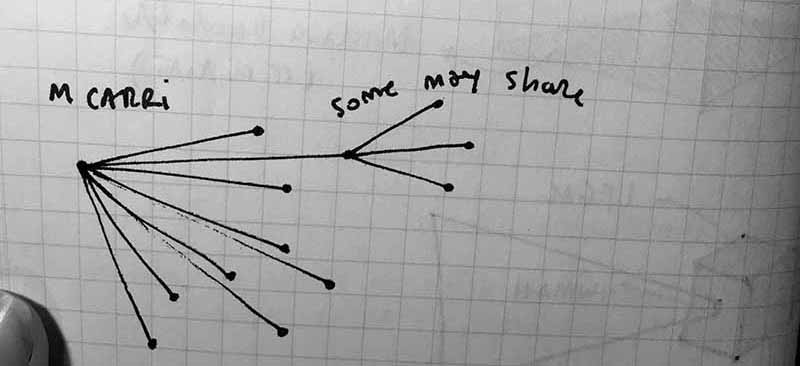 M CARRi
some may share